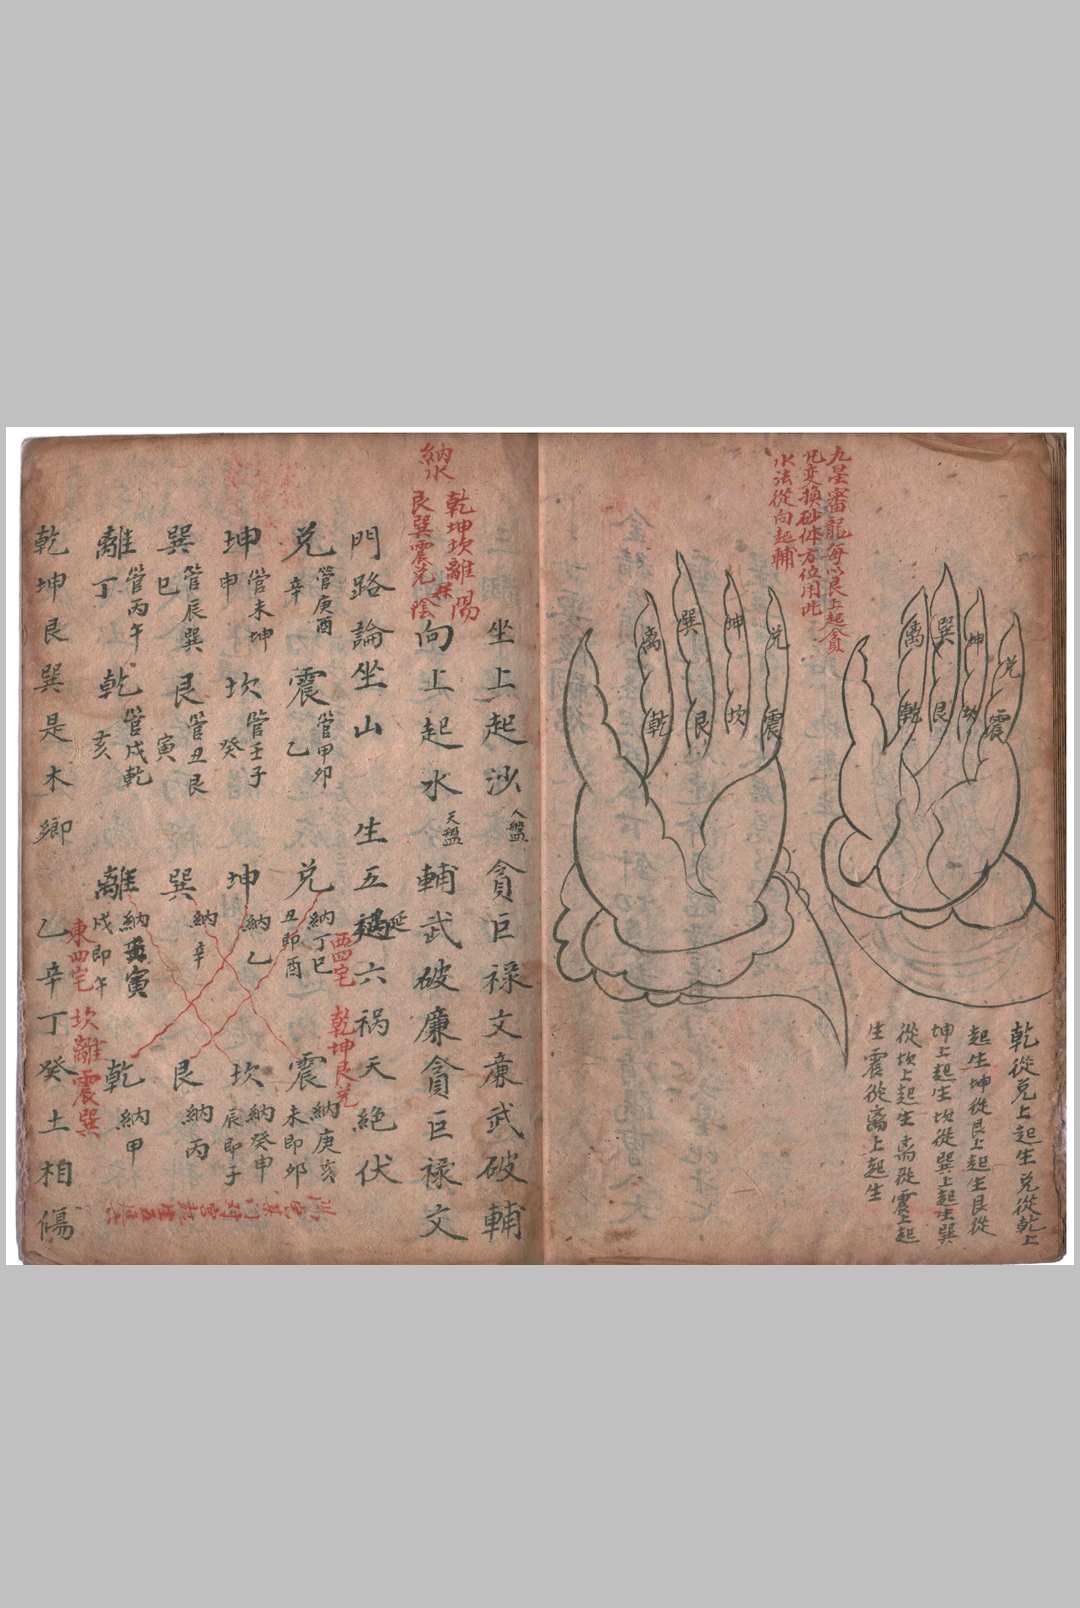 九星審龍每以艮上起貪
凡変換砂体方位用此
水法從向起輔
離
巽
坤
兌
乾
艮
坎
震
离
巽
坤
兌
乾
艮
坎
震
乾從兌上起生兌從乾上
起生坤從艮上起生艮從
坤上起生坎從巽上起生巽
從坎上起生离從震上起
生震從离上起生
納水
乾坤坎離 陽
艮巽震兌 陰
坐上起沙 人盤 貪巨禄文亷武破輔
向上起水 天盤 輔武破廉貪巨禄文
門路論坐山 生五延六祸天絶伏
兌 管庚酉辛 震 管甲卯乙 兌 納丁巳丑即酉 震 納庚亥未即卯
坤 管未坤申 坎 管壬子癸 坤 納乙 坎 納癸申辰即子
巽 管辰巽巳 艮 管丑艮寅 巽 納辛 艮 納丙
離 管丙午丁 乾 管戌乾亥 離 納寅戌即午 乾 納甲
乾坤艮巽是木鄉 乙辛丁癸土相傷
西四宅 乾坤艮兌
東四宅 坎離震巽